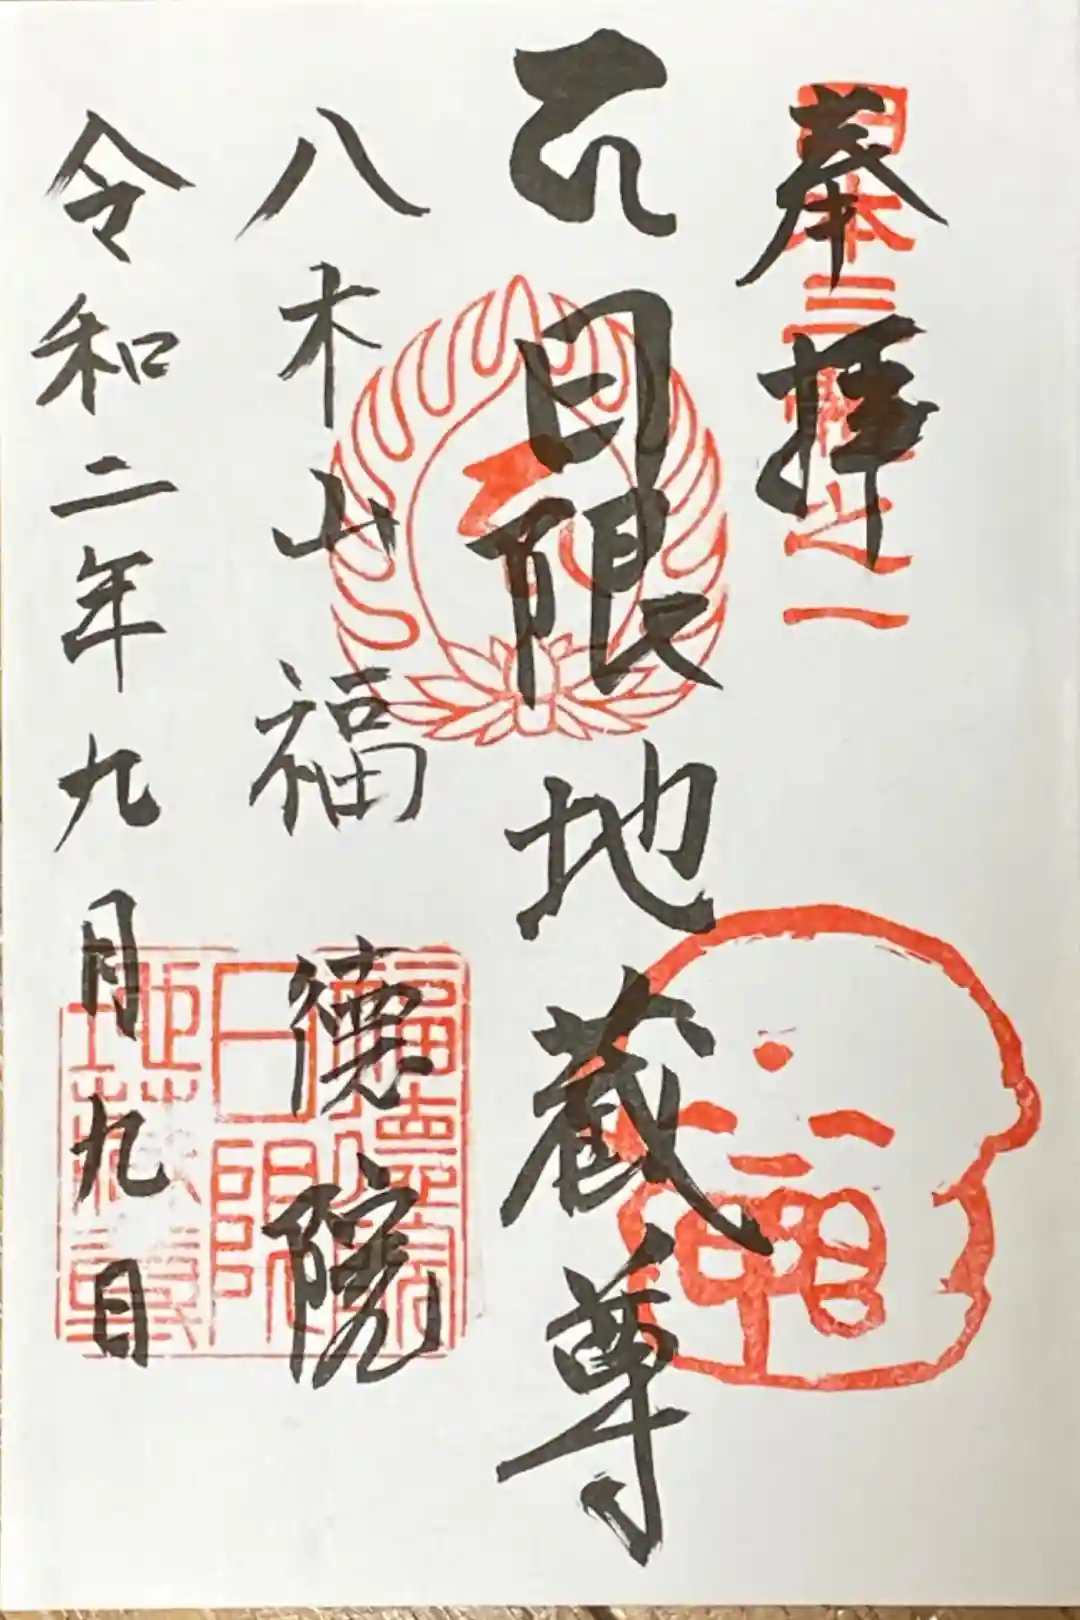 奉拝
日本三 之一
日限地蔵尊
八木山福徳院
令和二年九月九日
福德院
日限
地蔵尊